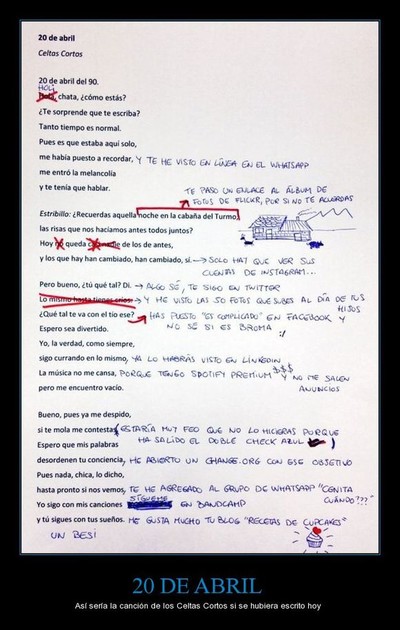 20 de abril
Celtas Cortos
20 de abril del 90.
HOLI
Hola, chata, ¿cómo estás?
¿Te sorprende que te escriba?
Tanto tiempo es normal.
Pues es que estaba aquí solo,
me había puesto a recordar, Y TE HE VISTO EN LÍNEA EN EL WHATSAPP
me entró la melancolía
y te tenía que hablar.
TE PASO UN ENLACE AL ÁLBUM DE
FOTOS DE FLICKR, POR SI NO TE ACUERDAS
Estribillo: ¿Recuerdas aquella noche en la cabaña del Turmo,
las risas que nos hacíamos antes todos juntos?
Hoy no queda casi nadie de los de antes,
y los que hay han cambiado, han cambiado, sí. → SOLO HAY QUE VER SUS
CUENTAS DE INSTAGRAM...
Pero bueno, ¿tú qué tal? DI → ALGO SÉ, TE SIGO EN TWITTER
Lo mismo hasta tienes críos. → Y HE VISTO LAS 50 FOTOS QUE SUBES AL DÍA DE TUS
HIJOS
¿Qué tal te va con el tío ese? HAS PUESTO "ES COMPLICADO" EN FACEBOOK Y
Espero sea divertido. NO SÉ SI ES BROMA :/
Yo, la verdad, como siempre,
sigo currando en lo mismo, YA LO HABRÁS VISTO EN LINKEDIN
La música no me cansa, PORQUE TENGO SPOTIFY PREMIUM $$$ Y NO ME SALEN
pero me encuentro vacío. ANUNCIOS
Bueno, pues ya me despido,
si te mola me contestas (ESTARÍA MUY FEO QUE NO LO HICIERAS PORQUE
Espero que mis palabras HA SALIDO EL DOBLE CHECK AZUL )
desordenen tu conciencia, HE ABIERTO UN CHANGE.ORG CON ESE OBJETIVO
Pues nada, chica, lo dicho,
hasta pronto si nos vemos, TE HE AGREGADO AL GRUPO DE WHATSAPP "CENITA
SÍGUEME CUÁNDO???"
Yo sigo con mis canciones EN BANDCAMP
y tú sigues con tus sueños. ME GUSTA MUCHO TU BLOG "RECETAS DE CUPCAKES"
UN BESI
20 DE ABRIL
Así sería la canción de los Celtas Cortos si se hubiera escrito hoy